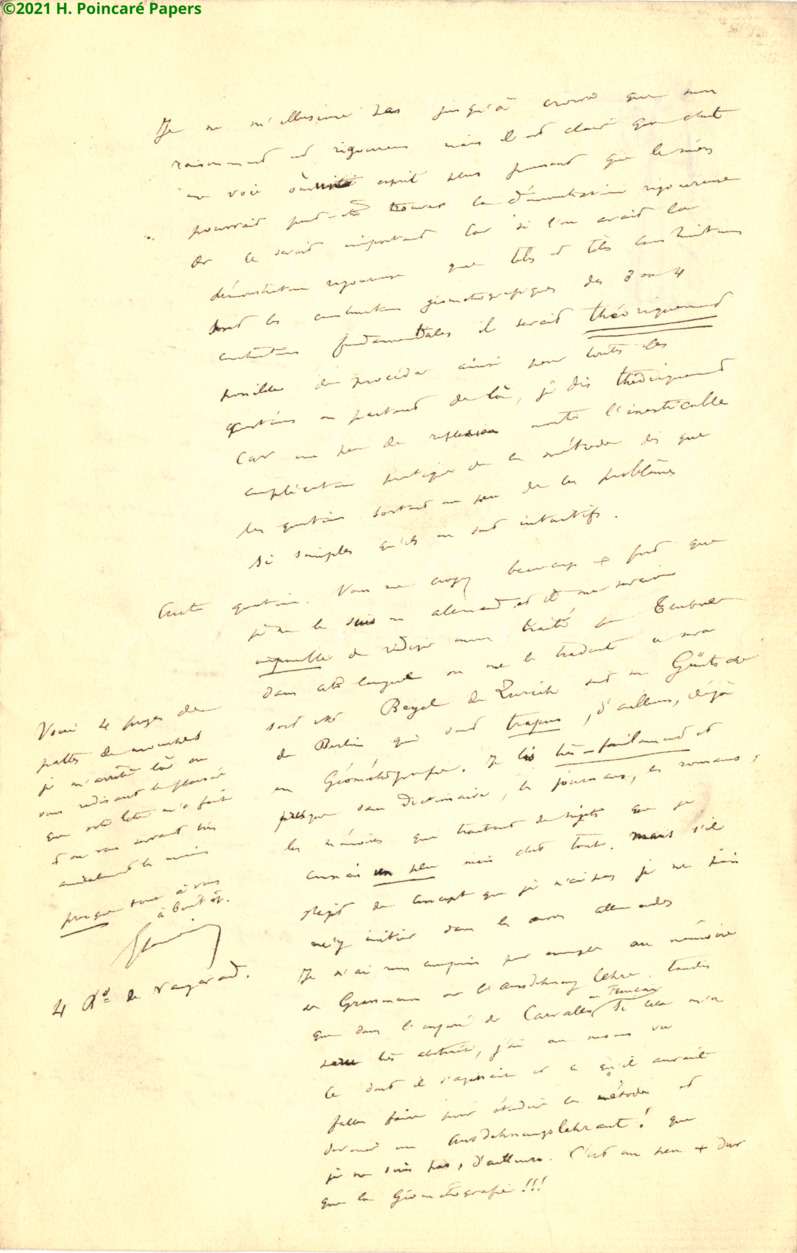 ©2021 H. Poincaré Papers
Je ne m'illusionne pas jusqu'à croire que mon
raisonnement est rigoureux mais il est clair que c'est
une voie où un esprit plus puissant que le mien
pourrait peut-être trouver la démonstration rigoureuse
Or ce serait important car si l'on avait la
démonstration rigoureuse que tels et tels constructions
sont les constructions géométrographiques des 3 ou 4
constructions fondamentales il serait théoriquement
possible de procéder ainsi pour toutes les
questions en partant de là, je dis théoriquement
Car un peu de réflexion montre l'inextricable
complication pratique de la méthode dès que
les questions sortent un peu de ces problèmes
si simples qu'ils en sont intuitifs.
Autre question. Vous me croyez beaucoup + fort que
je ne le suis en allemand et il me serait
impossible de rédiger mon traité pour Teubner
dans cette langue on me le traduit ce sera
soit Beyel de Zurich soit Güntsche
de Berlin qui sont trapus, d'ailleurs, déjà
en Géométrographie. Je lis très-facilement et
presque sans dictionnaire, les journaux, les romans,
les mémoires qui traitent de sujets que je
connais un peu mais c'est tout. mais s'il
s'agit de concept que je n'ai pas je ne puis
m'y initier dans les œuvres allemandes
Je n'ai rien compris par exemple au mémoire
de Grassmann sur l'Ausdehnungslehre. tandis
que dans l'exposé de Carvallo en Français si cela m'a
paru très abstrait, j'ai au moins vu
ce dont il s'agissait et ce qu'il aurait
fallu faire pour étudier la méthode et
devenir un Ausdehnungslehrant! que
je ne suis pas, d'ailleurs. C'est un peu + dur
que la Géométrographie!!!
Voici 4 pages de
pattes de mouches
je m'arrête là en
vous redisant le plaisir
que votre lettre m'a fait
et en vous serrant très
cordialement la main
presque tout à vous
à bientôt.
4 Xe de